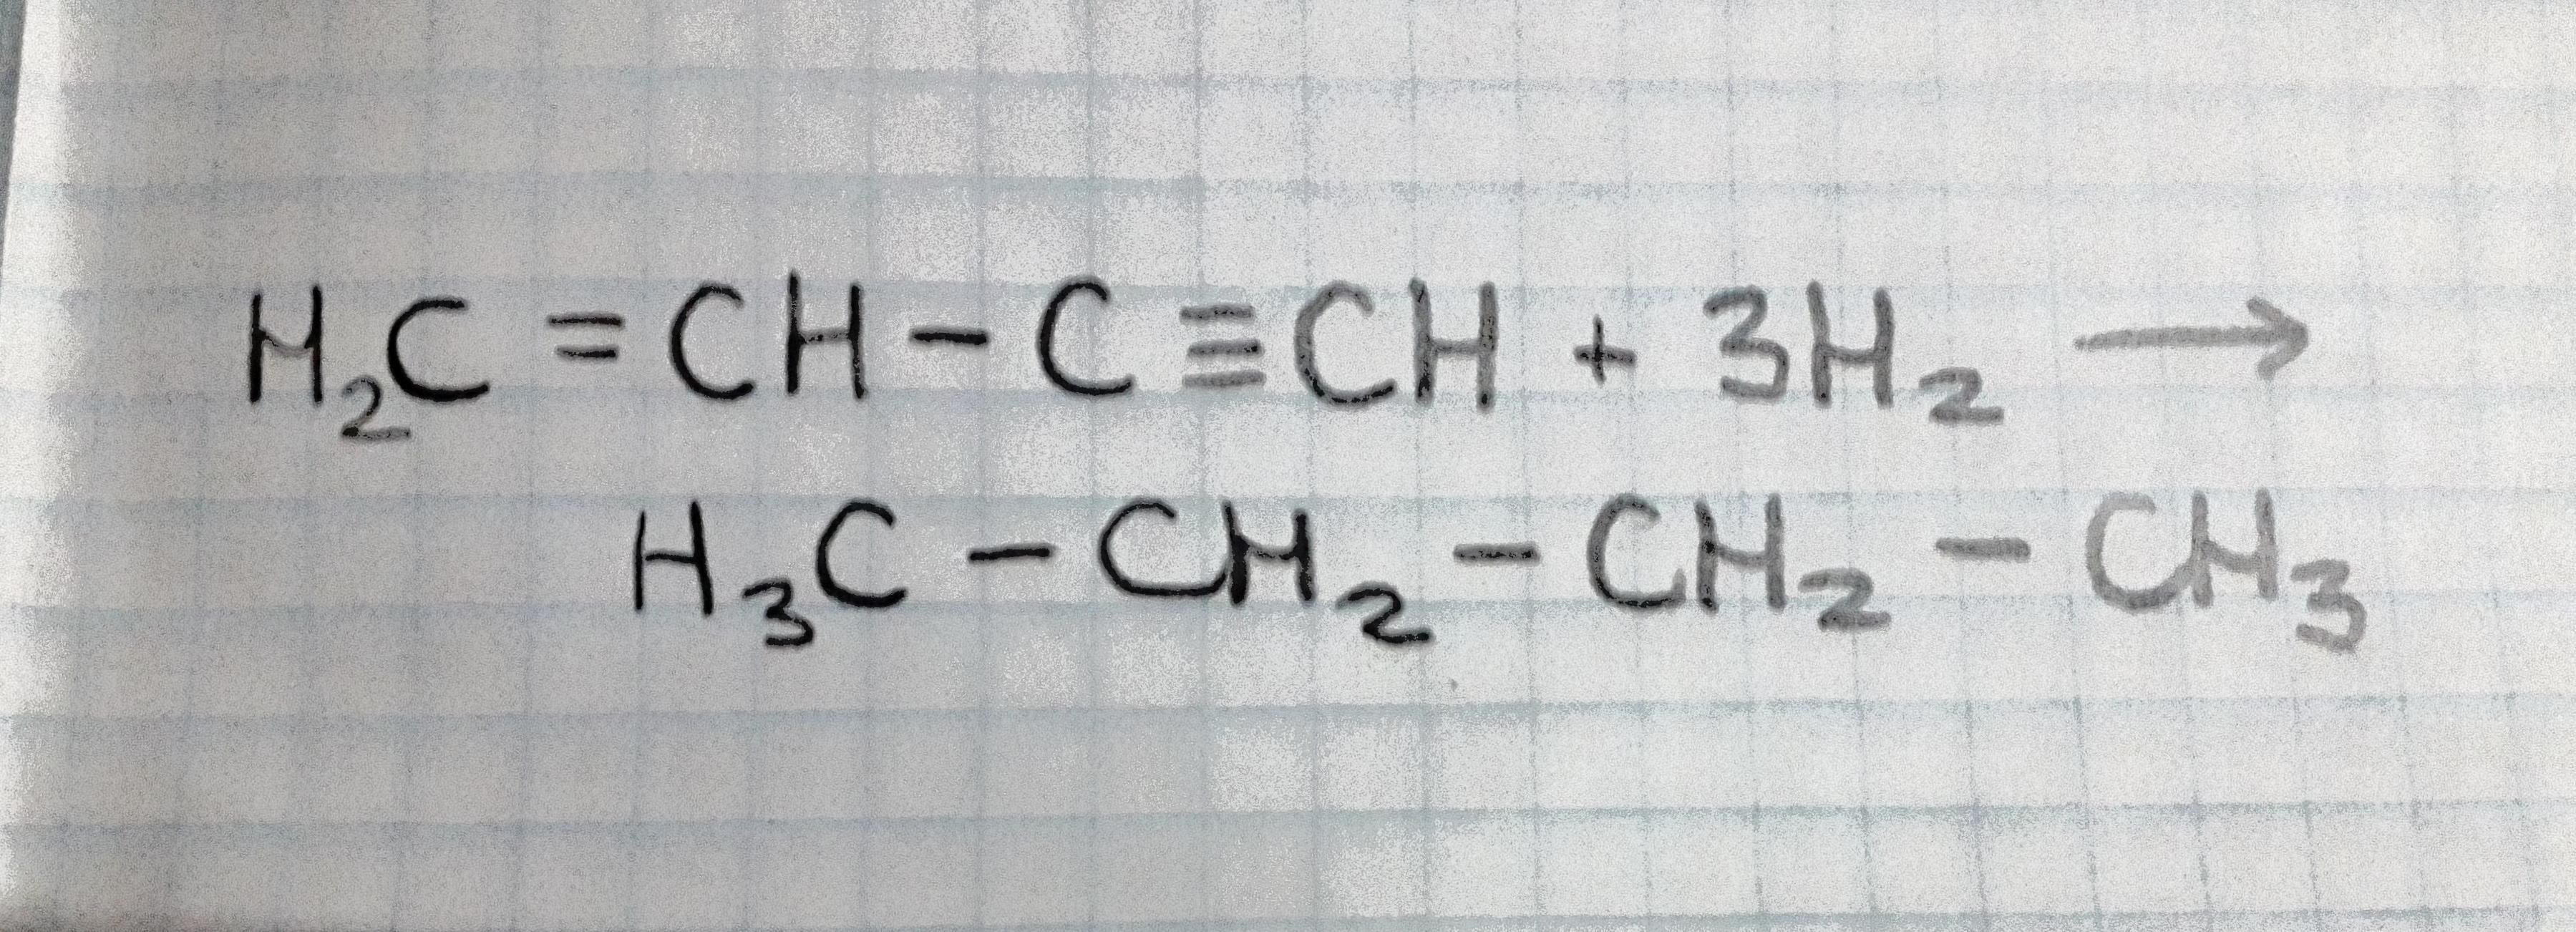 H₂C = CH - C ≡ CH + 3H₂ →
H₃C - CH₂ - CH₂ - CH₃